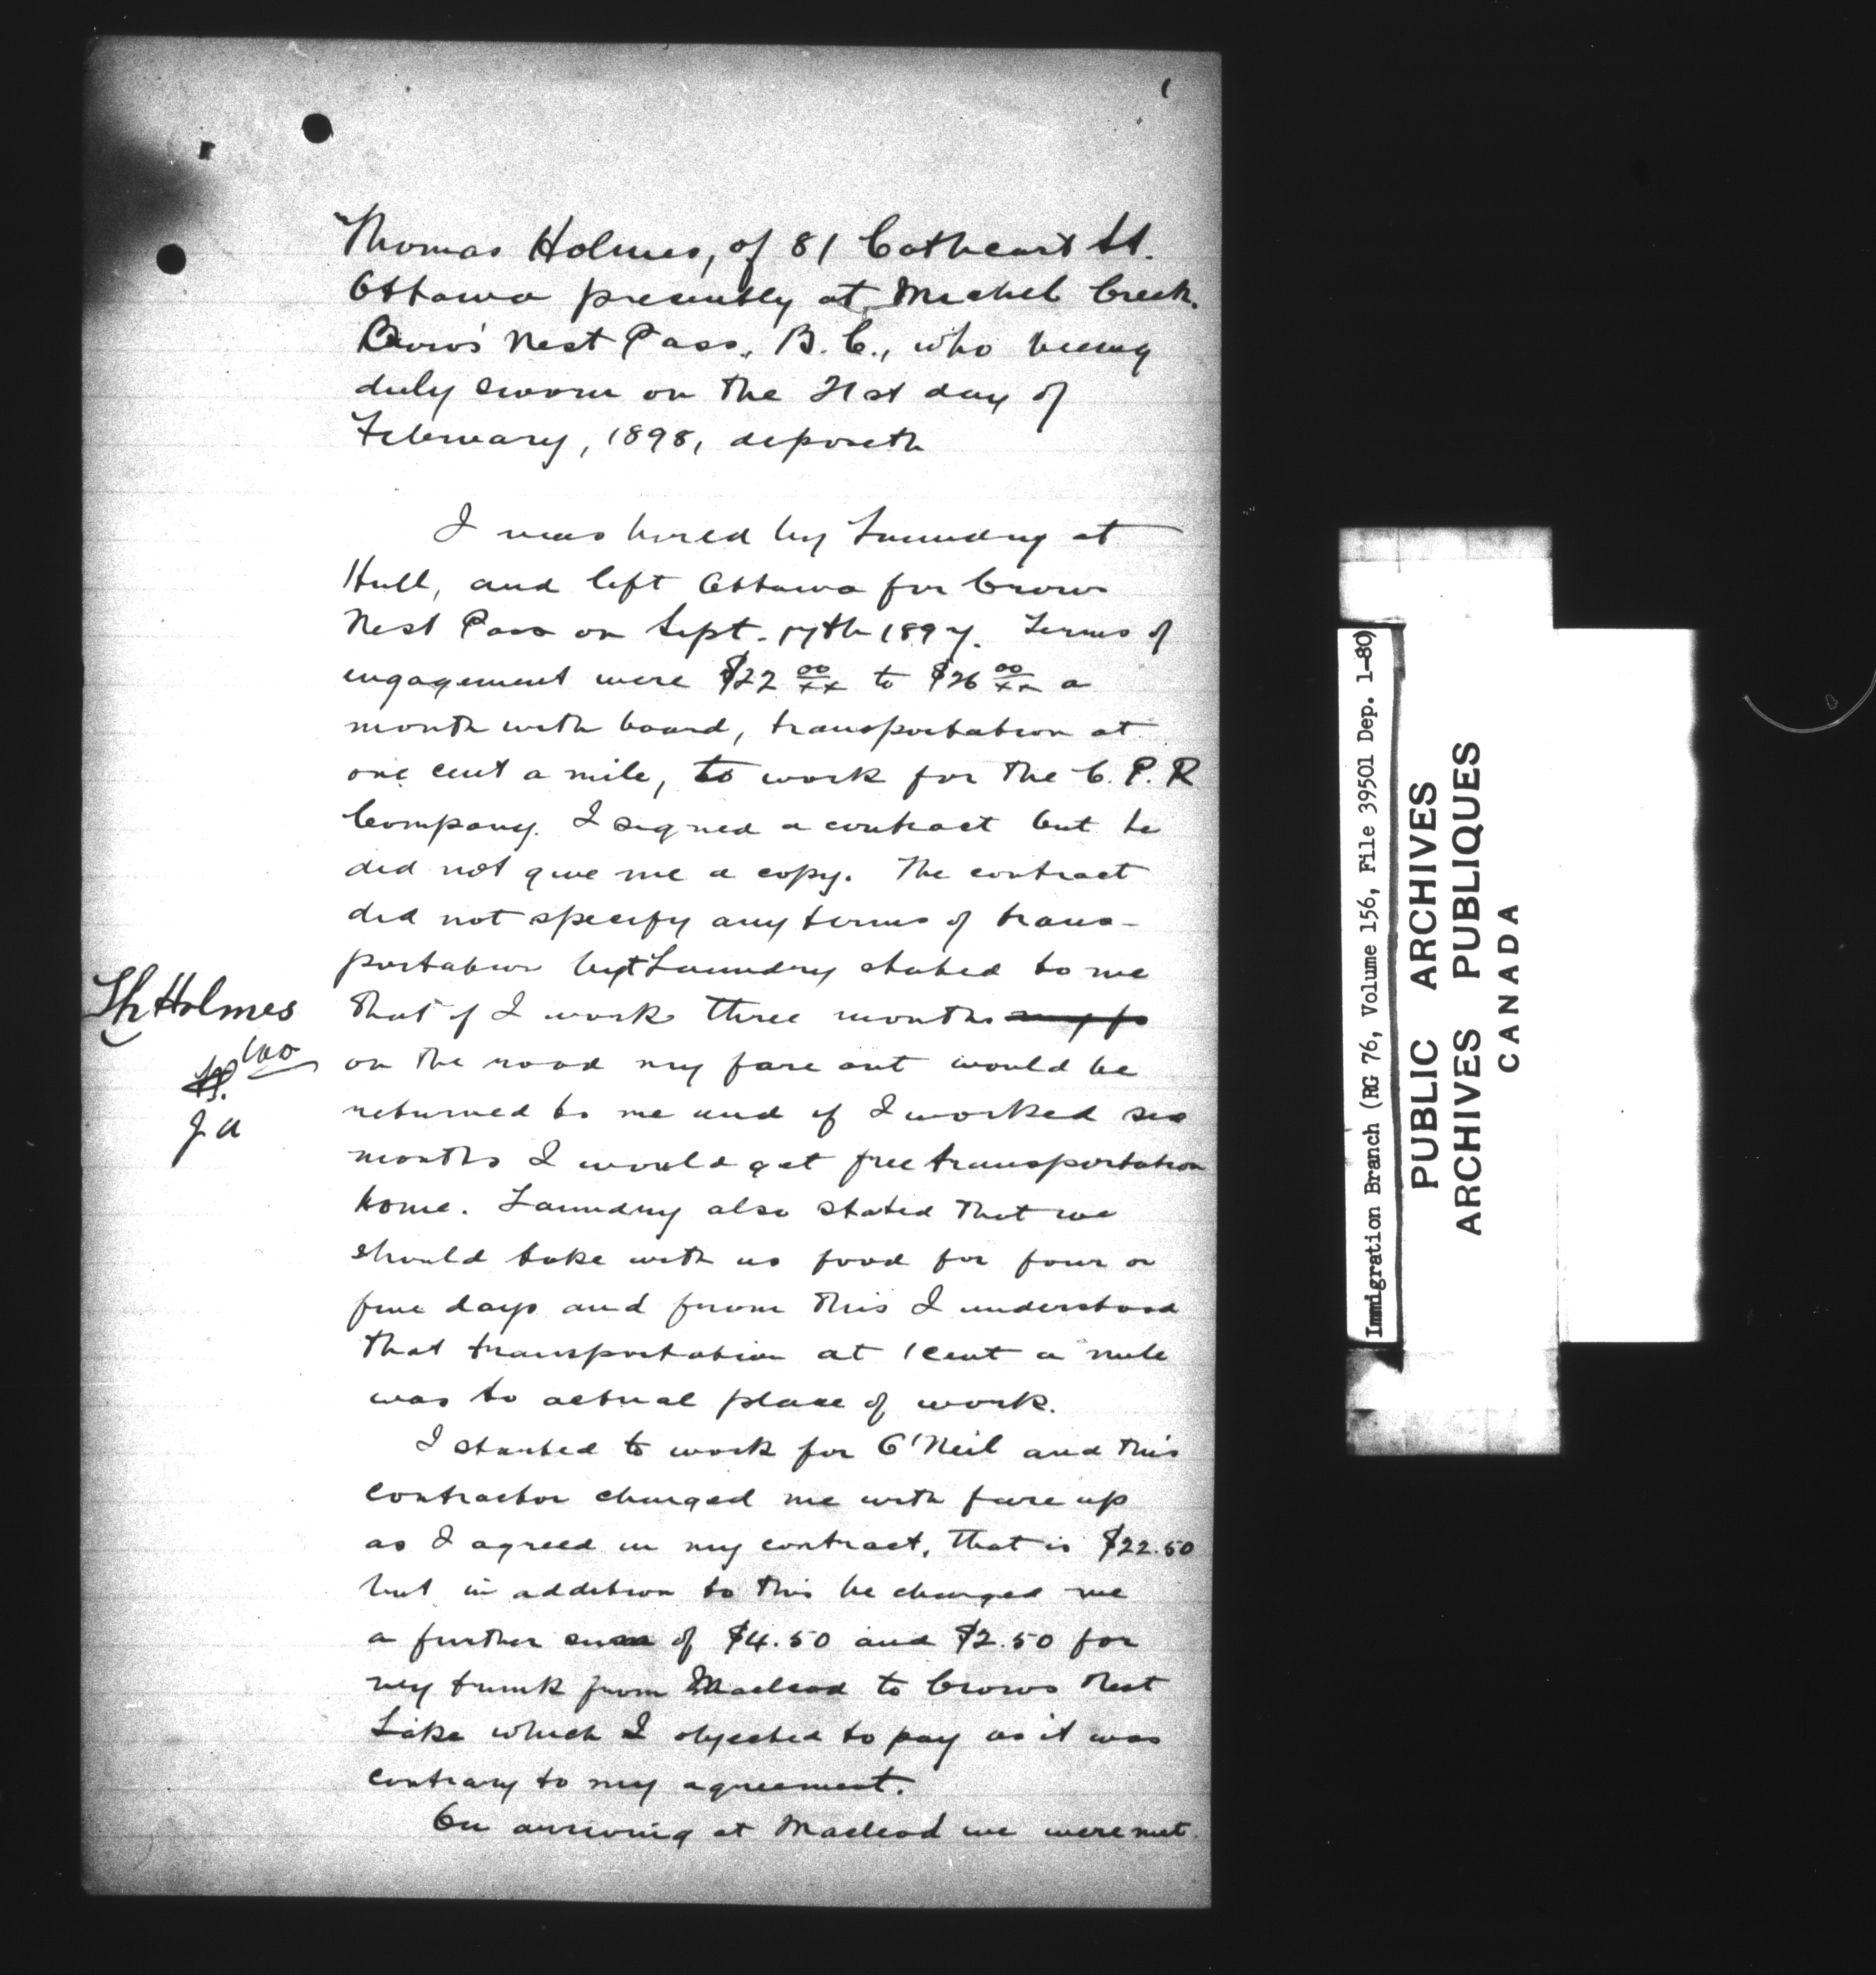 1
Thomas Holmes, of 81 Cathcart St.
Ottawa presently at Michel Creek.
Crow's Nest Pass, B.C., who being
duly sworn on the 21st day of
February, 1898, deposeth
I was hired by Laundry at
Hull, and left Ottawa for Crows
Nest Pass on Sept. 17th 1897. Terms of
engagement were $22 00/xx to $26 00/xx a
month with board, transportation at
one cent a mile, to work for the C. P. R
Company. I signed a contract but he
did not give me a copy. The contract
did not specify any terms of trans-
portation but Laundry stated to me
Th Holmes
that if I work three months my fa
on the road my fare out would be
returned to me and if I worked six
J. A
months I would get free transportation
home. Laundry also stated that we
should take with us food for four or
five days and from this I understood
that transportation at 1 cent a mile
was to actual place of work.
I started to work for O'Neil and this
contractor charged me with fare up
as I agreed in my contract, that is $22.50
but in addition to this he charged me
a further sum of $4.50 and $2.50 for
my trunk from Macleod to Crows Nest
Lake which I objected to pay as it was
contrary to my agreement.
On arriving at Macleod we were met
Immigration Branch (RG 76, Volume 156, File 39501 Dep. 1-80)
PUBLIC ARCHIVES
ARCHIVES PUBLIQUES
CANADA